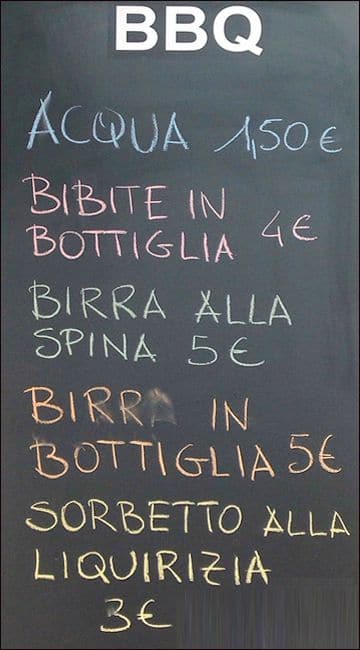 BBQ
ACQUA 1,50 €
BIBITE IN
BOTTIGLIA 4€
BIRRA ALLA
SPINA 5€
BIRRA IN
BOTTIGLIA 5€
SORBETTO ALLA
LIQUIRIZIA
3€